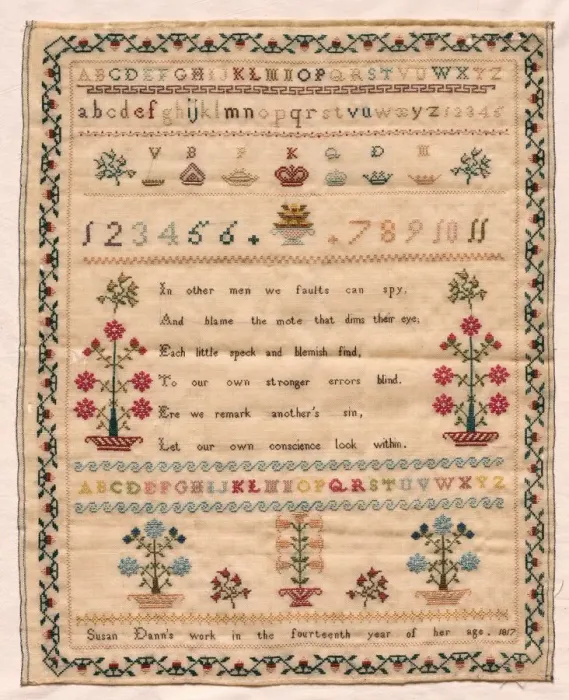 ABCDEFGHIJKLMNOPQRSTVUWXYZ
abcdefghijklmnopqrstvuwxyz123456
V B F K Q D M
123456 7891011
In other men we faults can spy,
And blame the mote that dims their eye;
Each little speck and blemish find,
To our own stronger errors blind.
Ere we remark another's sin,
Let our own conscience look within.
ABCDEFGHIJKLMNOPQRSTUVWXYZ
Susan Dann's work in the fourteenth year of her age. 1817